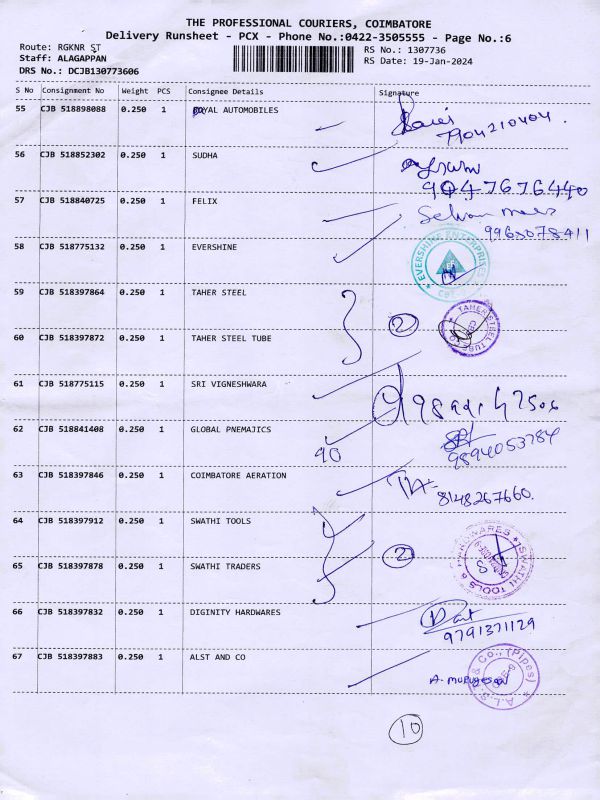 THE PROFESSIONAL COURIERS, COIMBATORE
Delivery Runsheet - PCX - Phone No.:0422-3505555 - Page No.:6
Route: RGKNR ST
RS No.: 1307736
Staff: ALAGAPPAN
RS Date: 19-Jan-2024
DRS No.: DCJB130773606
S No Consignment No Weight PCS Consignee Details Signature
55 CJB 518898088 0.250 1 ROYAL AUTOMOBILES
7904210404.
56 CJB 518852302 0.250 1 SUDHA
9047676440
57 CJB 518840725 0.250 1 FELIX
9963078411
58 CJB 518775132 0.250 1 EVERSHINE
EVERSHINE ENTERPRISES
59 CJB 518397864 0.250 1 TAHER STEEL
2
TAHER STEEL TUBE
60 CJB 518397872 0.250 1 TAHER STEEL TUBE
61 CJB 518775115 0.250 1 SRI VIGNESHWARA
62 CJB 518841408 0.250 1 GLOBAL PNEMAJICS
90
9894053784
63 CJB 518397846 0.250 1 COIMBATORE AERATION
8148267660.
64 CJB 518397912 0.250 1 SWATHI TOOLS
SWATHI TOOLS & HARDWARES
65 CJB 518397878 0.250 1 SWATHI TRADERS
2
66 CJB 518397832 0.250 1 DIGINITY HARDWARES
9791371129
67 CJB 518397883 0.250 1 ALST AND CO
A. Murugesan
A.L.S.T. & Co., (Pipes)
10